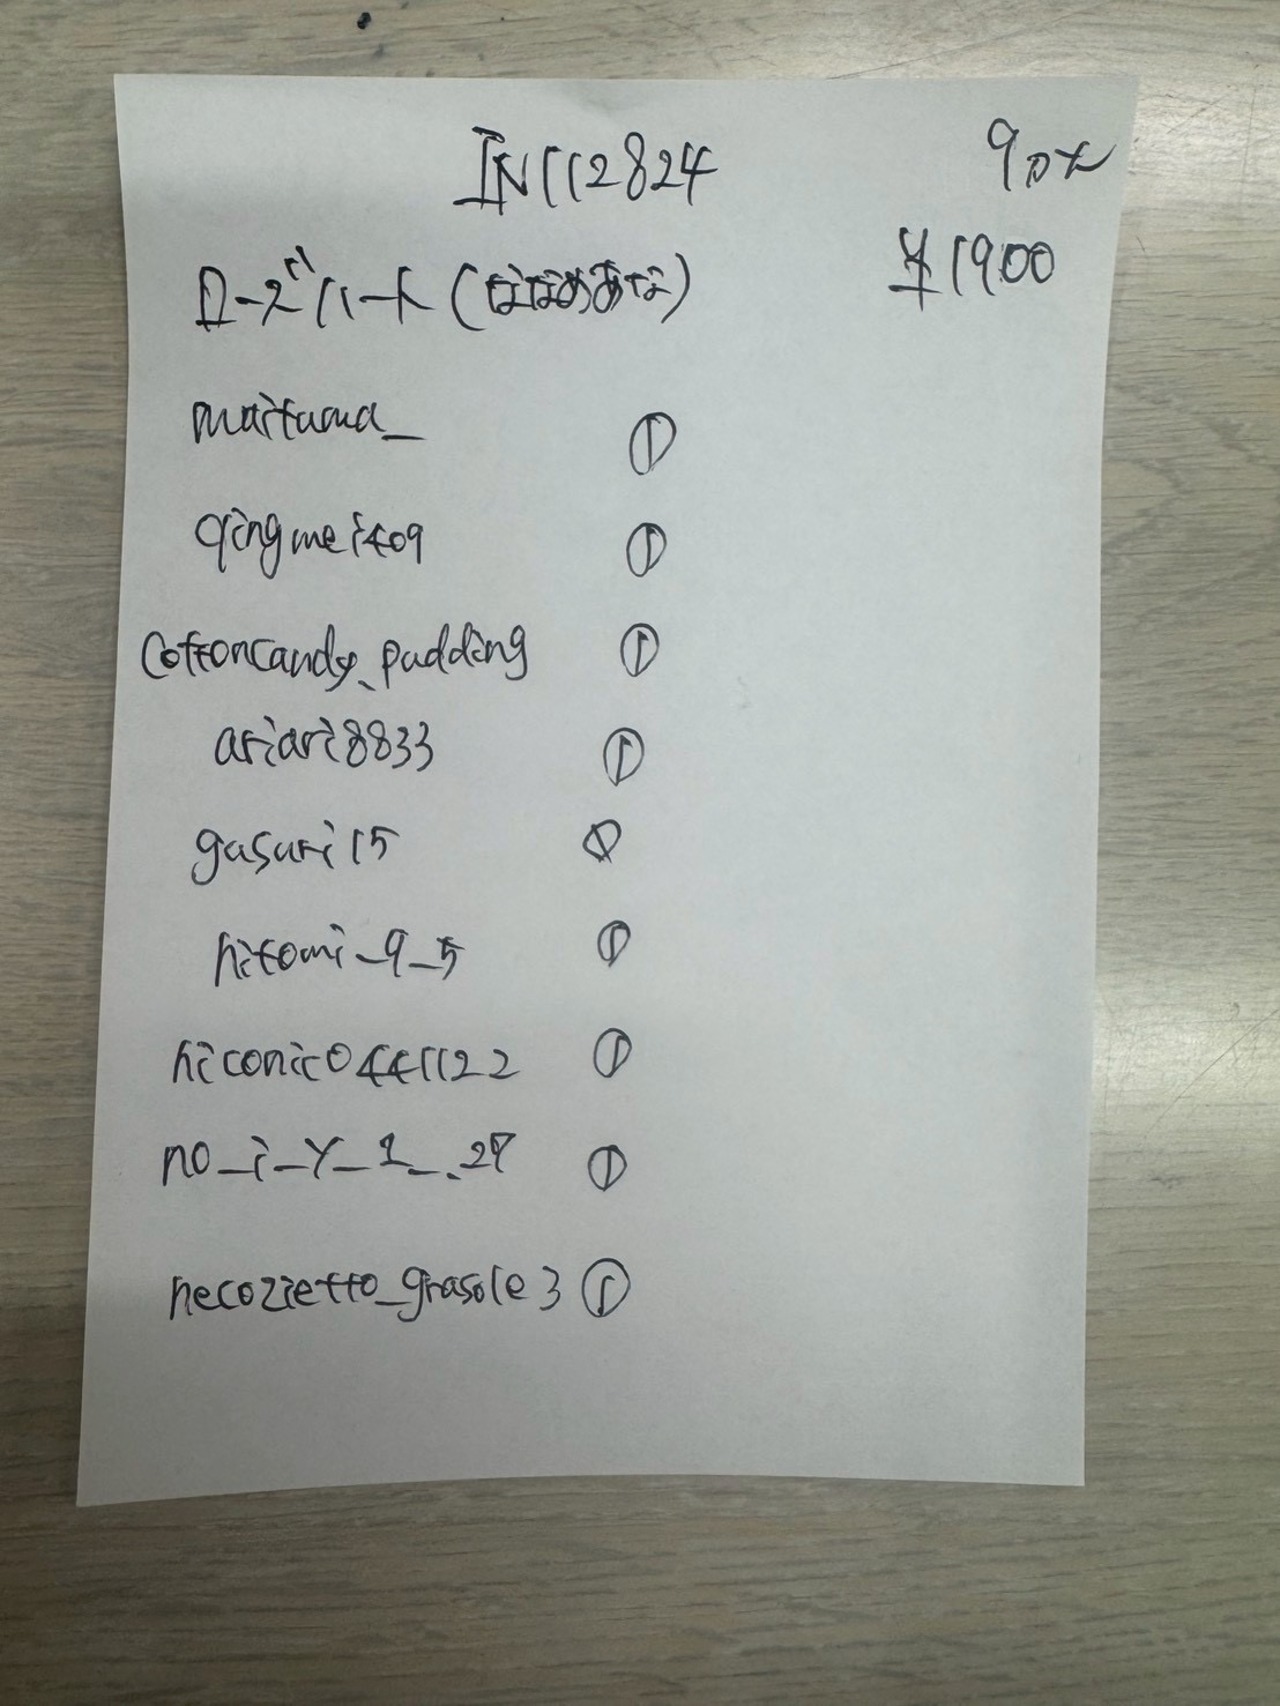 IN112824 9px
ローズハート(ななめあな) ¥1900
maitama_ ①
qingmei409 ①
cottoncandy_pudding ①
ariari8833 ①
gasari15 ①
hitomi_9_5 ①
hiconico441122 ①
no_i_y_1__.27 ①
necozietto_grasole3 ①